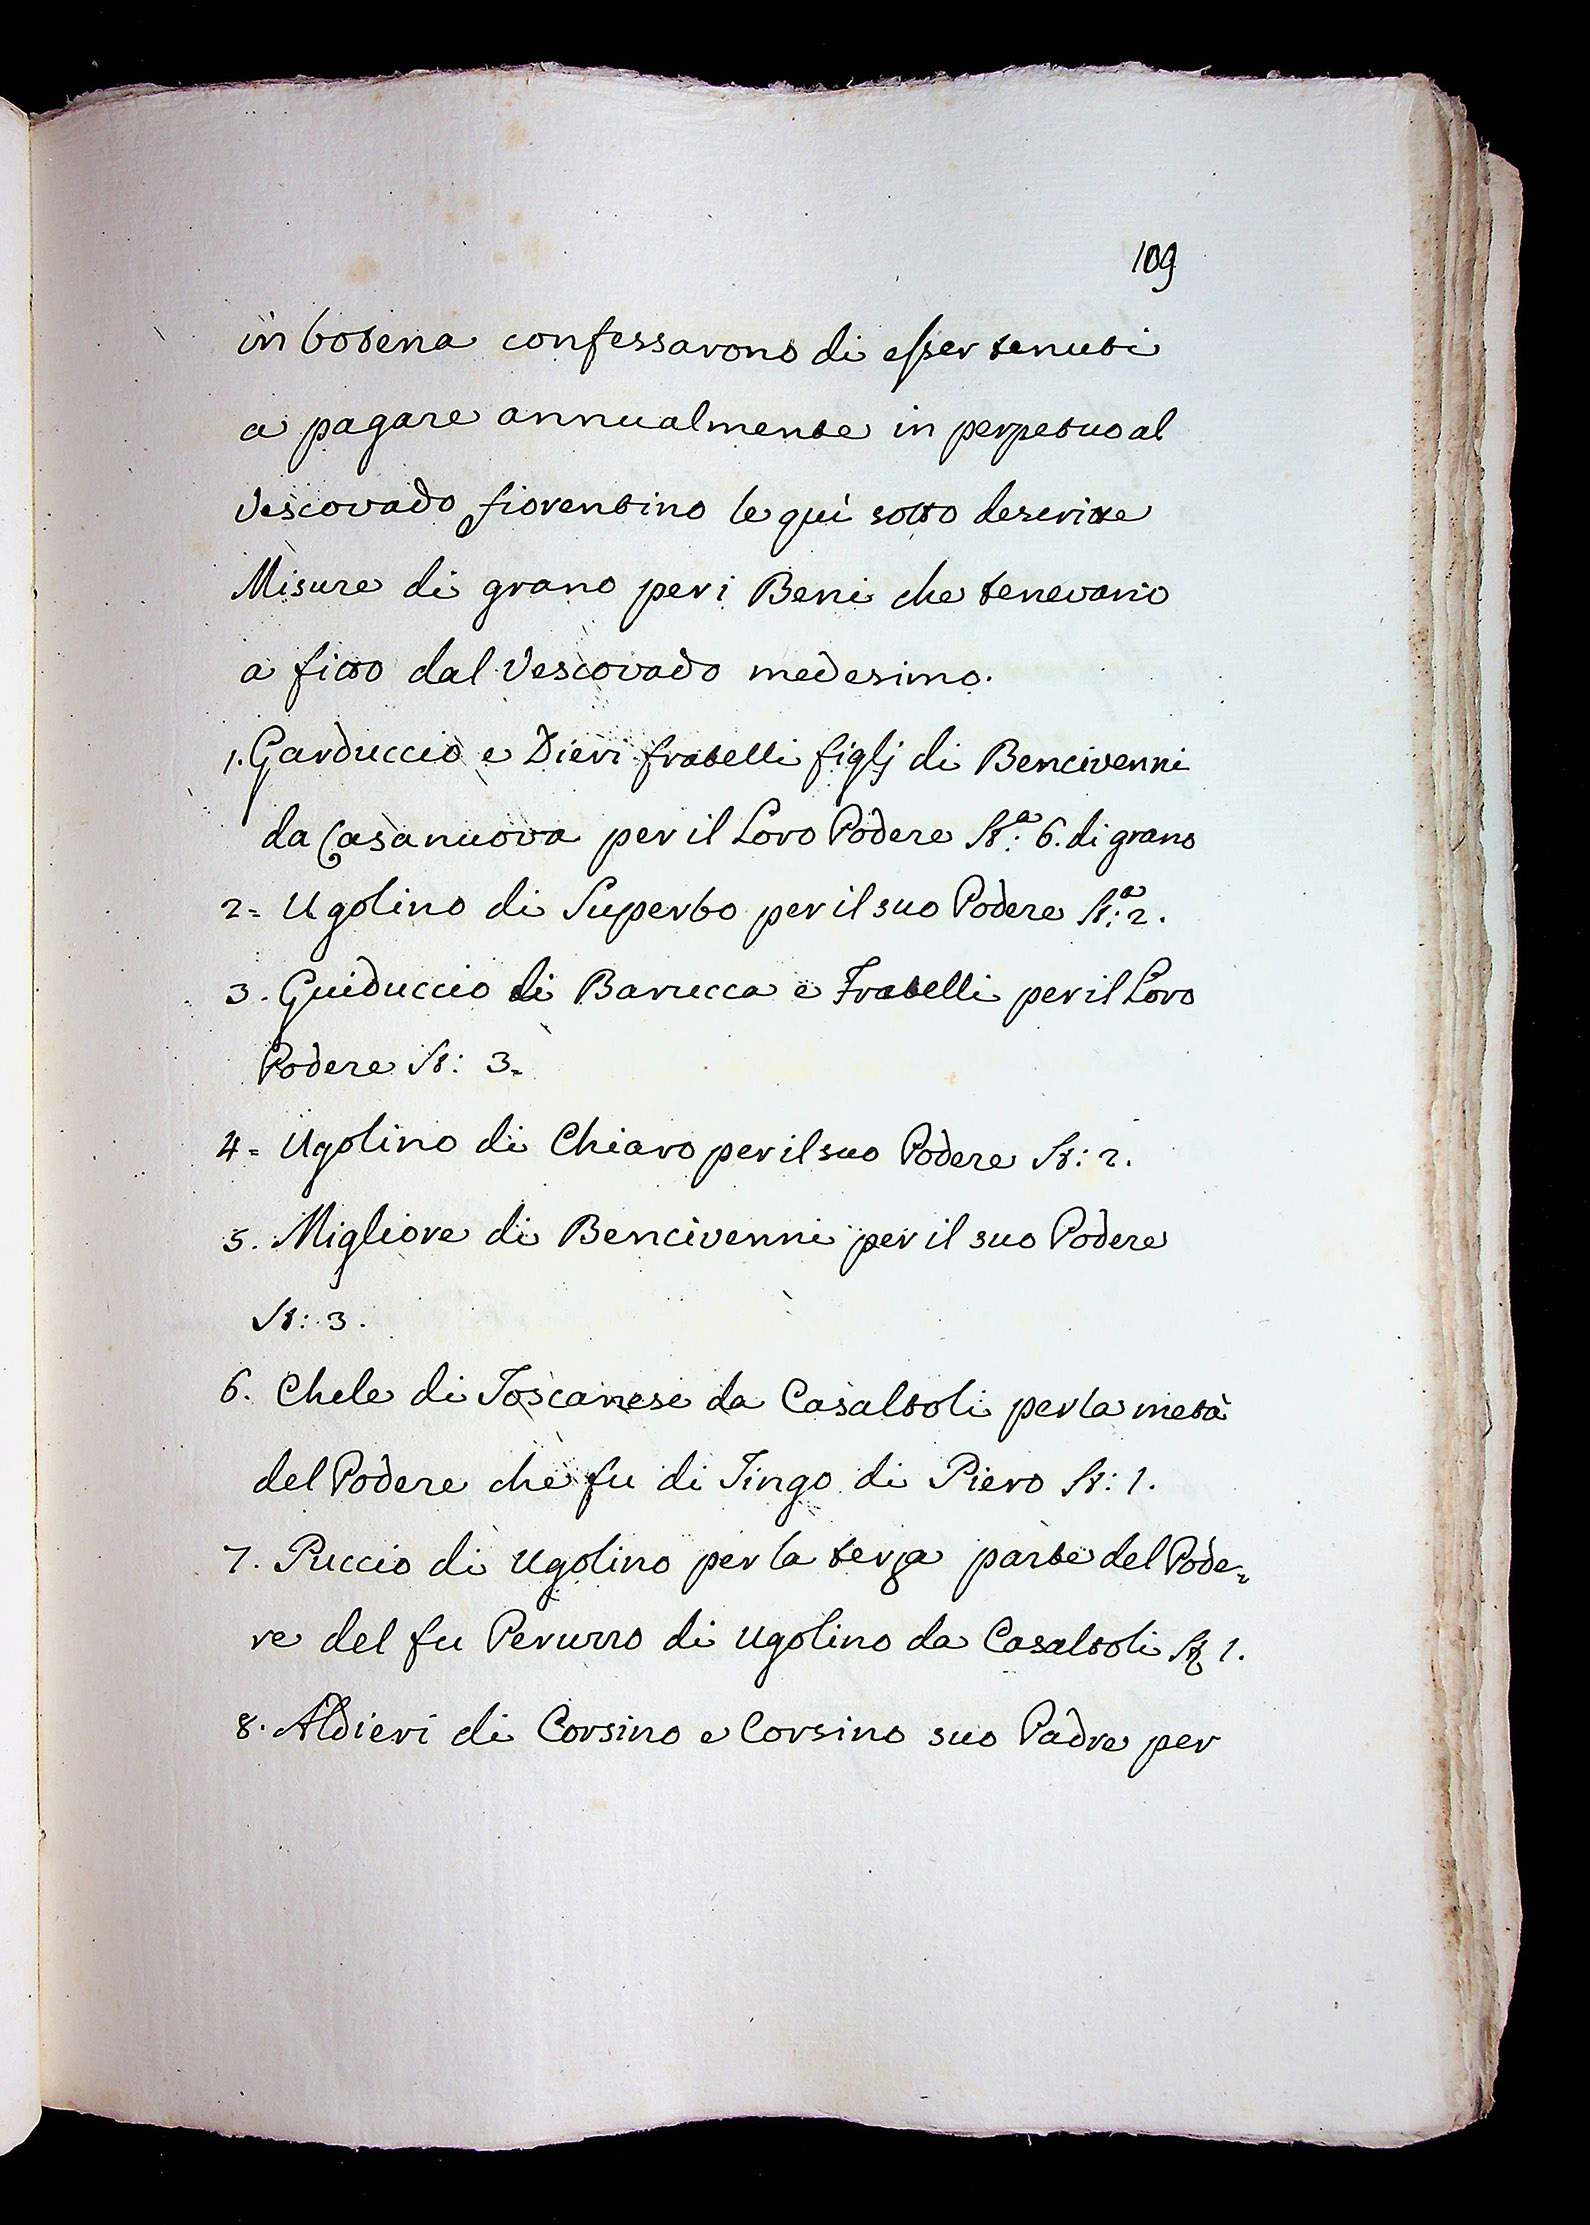 109
in botena confessarono di esser tenuti
a pagare annualmente in perpetuo al
Vescovado fiorentino le quì sotto descritte
Misure di grano per i Beni che tenevano
a fitto dal Vescovado medesimo.
1. Garduccio e Dieri fratelli figlj di Bencivenni
da Casanuova per il Loro Podere St:ª 6. di grano
2= Ugolino di Superbo per il suo Podere St:ª 2.
3. Guiduccio di Barucca e Fratelli per il Loro
Podere St: 3=
4= Ugolino di Chiaro per il suo Podere St: 2.
5. Migliore di Bencivenni per il suo Podere
St: 3.
6. Chele di Toscanese da Casaltoli per la metà
del Podere che fu di Tingo di Piero St: 1.
7. Puccio di Ugolino per la terza parte del Pode=
re del fu Peruzzo di Ugolino da Casaltoli St 1.
8. Aldieri di Corsino e Corsino suo Padre per